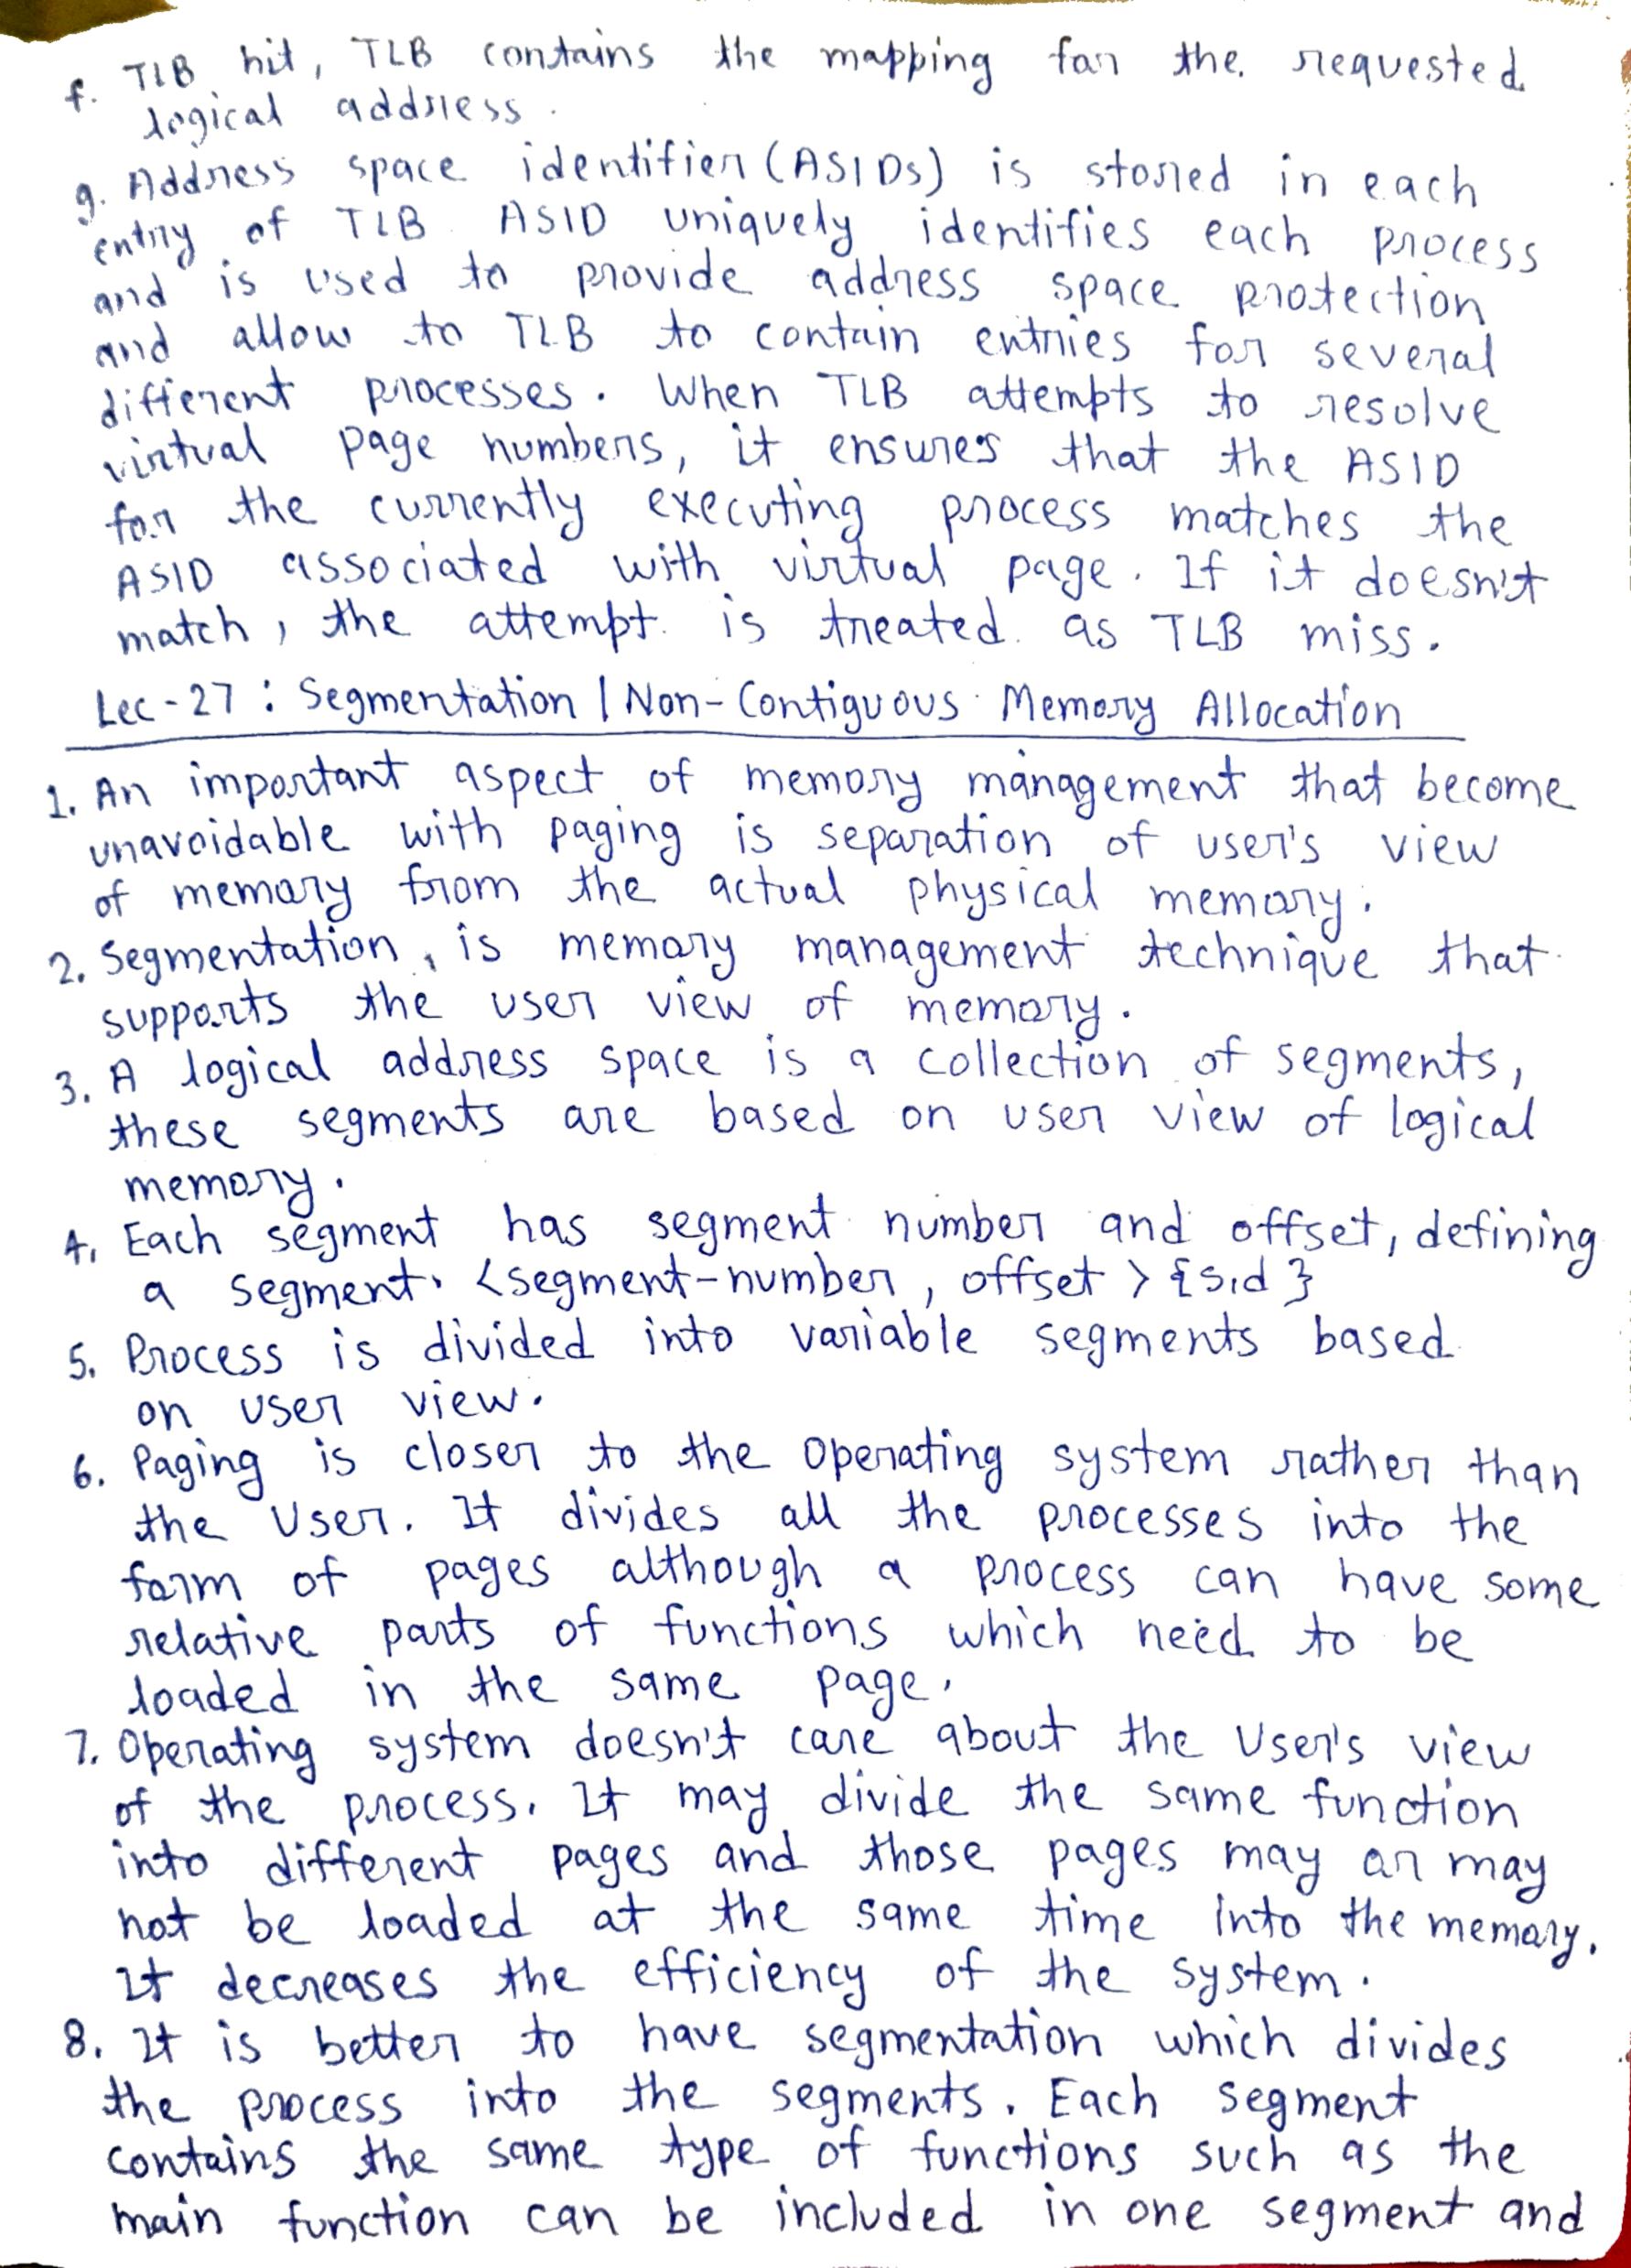 f. TLB hit, TLB contains the mapping for the requested
logical address.
g. Address space identifier (ASIDs) is stored in each
entry of TLB. ASID uniquely identifies each process
and is used to provide address space protection
and allow to TLB to contain entries for several
different processes. When TLB attempts to resolve
virtual page numbers, it ensures that the ASID
for the currently executing process matches the
ASID associated with virtual page. If it doesn't
match, the attempt is treated as TLB miss.
Lec-27 : Segmentation | Non-Contiguous Memory Allocation
1. An important aspect of memory management that become
unavoidable with paging is separation of user's view
of memory from the actual physical memory.
2. Segmentation, is memory management technique that
supports the user view of memory.
3. A logical address space is a collection of segments,
these segments are based on user view of logical
memory.
4. Each segment has segment number and offset, defining
a segment. <segment-number, offset> {s,d}
5. Process is divided into variable segments based
on user view.
6. Paging is closer to the Operating system rather than
the User. It divides all the processes into the
form of pages although a process can have some
relative parts of functions which need to be
loaded in the same page.
7. Operating system doesn't care about the User's view
of the process. It may divide the same function
into different pages and those pages may or may
not be loaded at the same time into the memory.
It decreases the efficiency of the system.
8. It is better to have segmentation which divides
the process into the segments. Each segment
contains the same type of functions such as the
main function can be included in one segment and